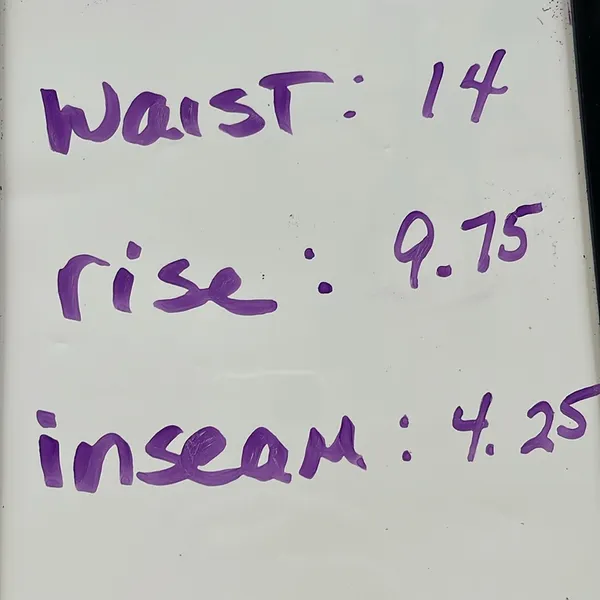 waist: 14
rise: 9.75
inseam: 4.25